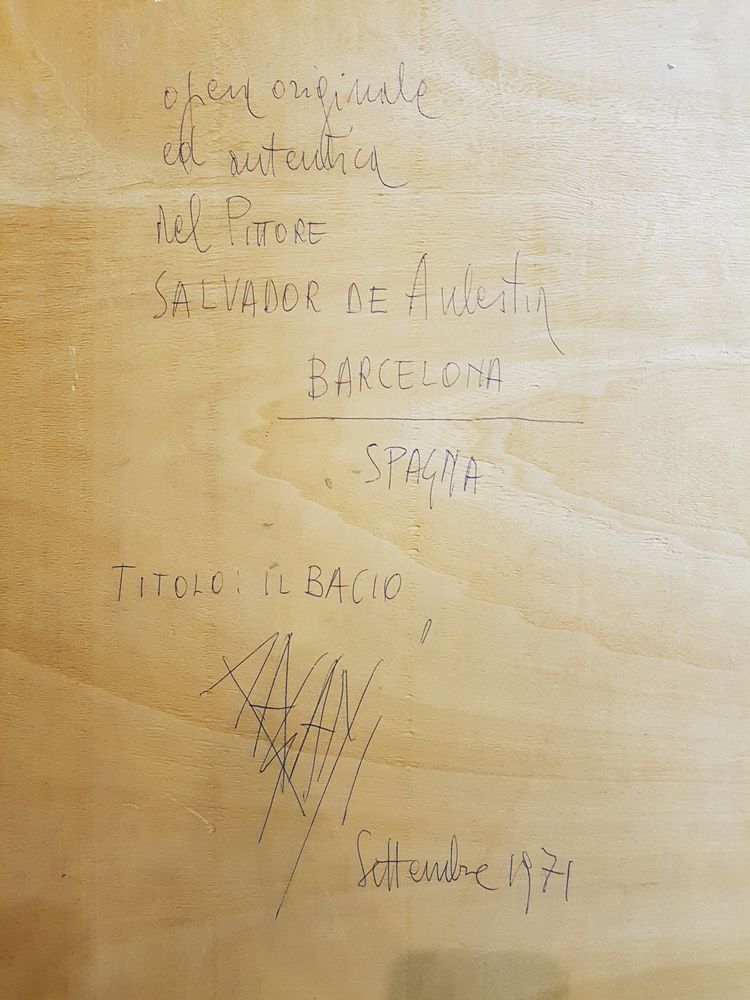 opera originale
ed autentica
del PITTORE
SALVADOR DE Aulestia
BARCELONA
SPAGNA
TITOLO: IL BACIO
Settembre 1971